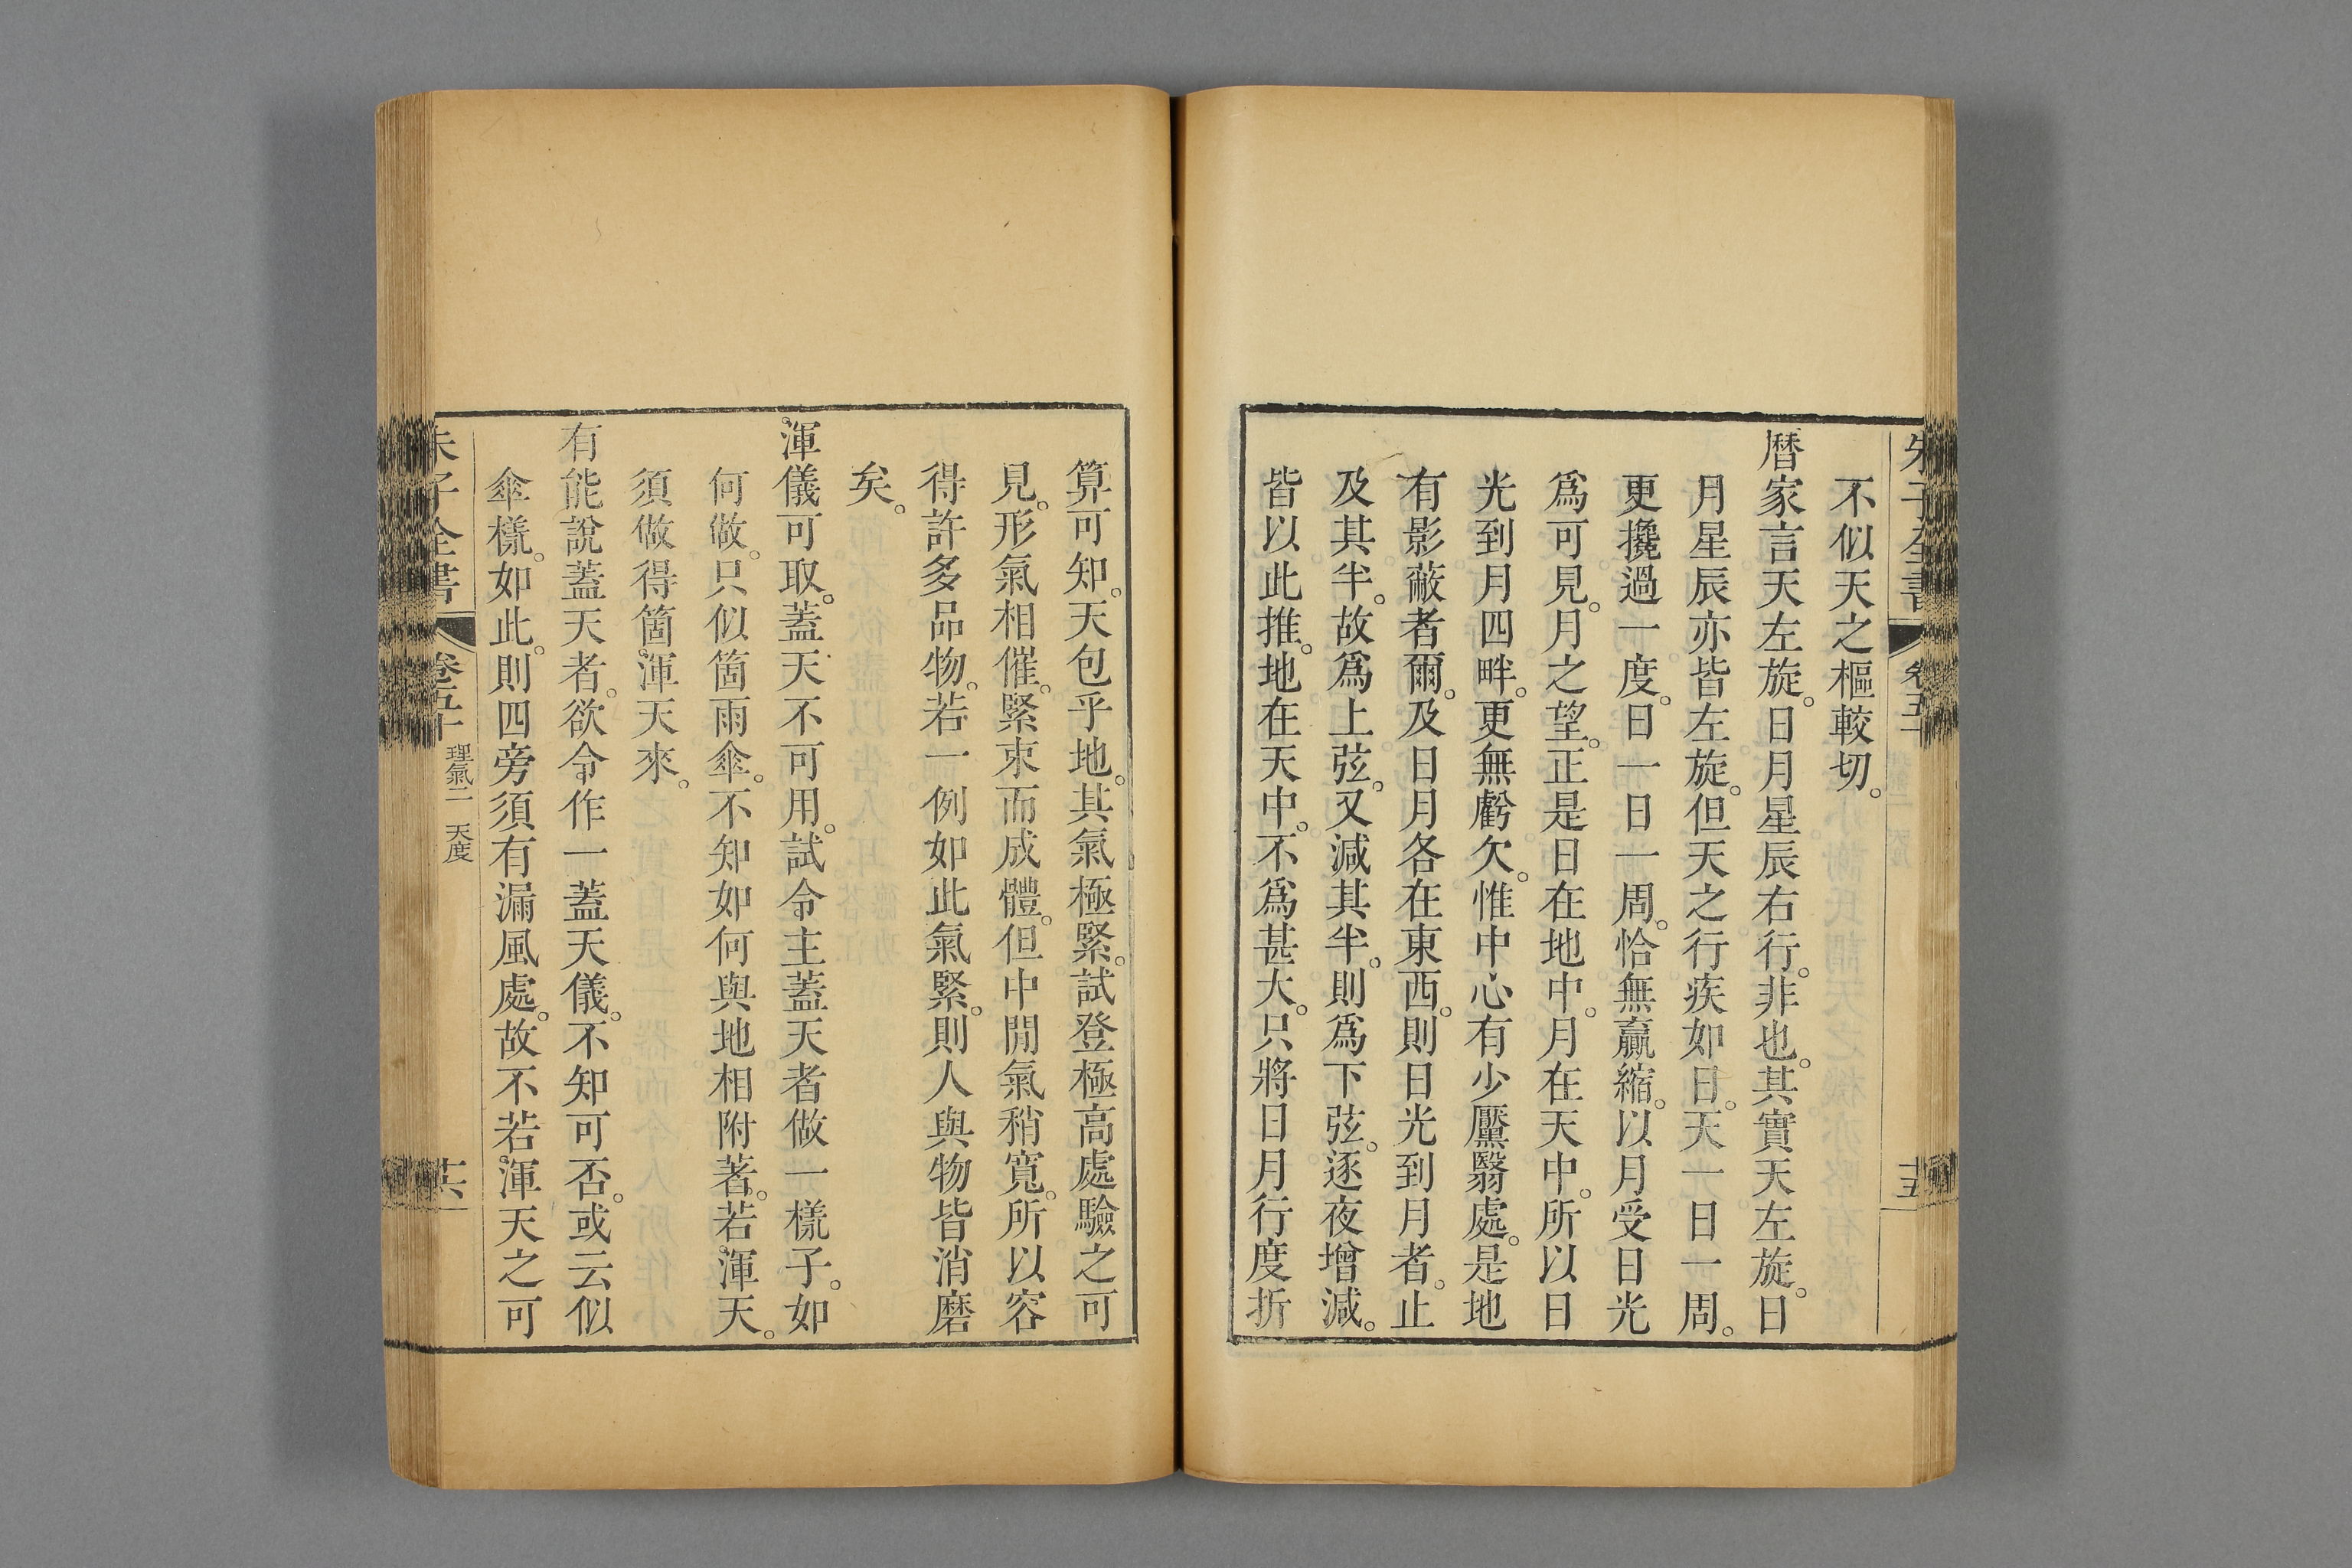 朱子全書 卷五十 十五
不似天之樞較切。
曆家言天左旋。日月星辰右行。非也。其實天左旋。日
月星辰亦皆左旋。但天之行疾如日。天一日一周。
更攙過一度。日一日一周。恰無贏縮。以月受日光
爲可見。月之望。正是日在地中。月在天中。所以日
光到月四畔。更無虧欠。惟中心有少黶翳處。是地
有影蔽者爾。及日月各在東西。則日光到月者。止
及其半。故爲上弦。又減其半。則爲下弦。逐夜增減。
皆以此推。地在天中。不爲甚大。只將日月行度折
算可知。天包乎地。其氣極緊。試登極高處驗之可
見。形氣相催。緊束而成體。但中閒氣稍寬。所以容
得許多品物。若一例如此氣緊。則人與物皆消磨
矣。
渾儀可取。蓋天不可用。試令主蓋天者做一樣子。如
何做。只似箇雨傘。不知如何與地相附著。若渾天。
須做得箇渾天來。
有能說蓋天者。欲令作一蓋天儀。不知可否。或云似
傘樣。如此。則四旁須有漏風處。故不若渾天之可
朱子全書 卷五十 理氣二 天度 十六